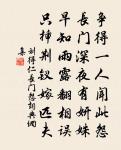 争得一人闻此怨
长门深夜有妍姝
早知雨露翻相误
只插荆钗嫁匹夫
刘得仁长门怨词典网
集